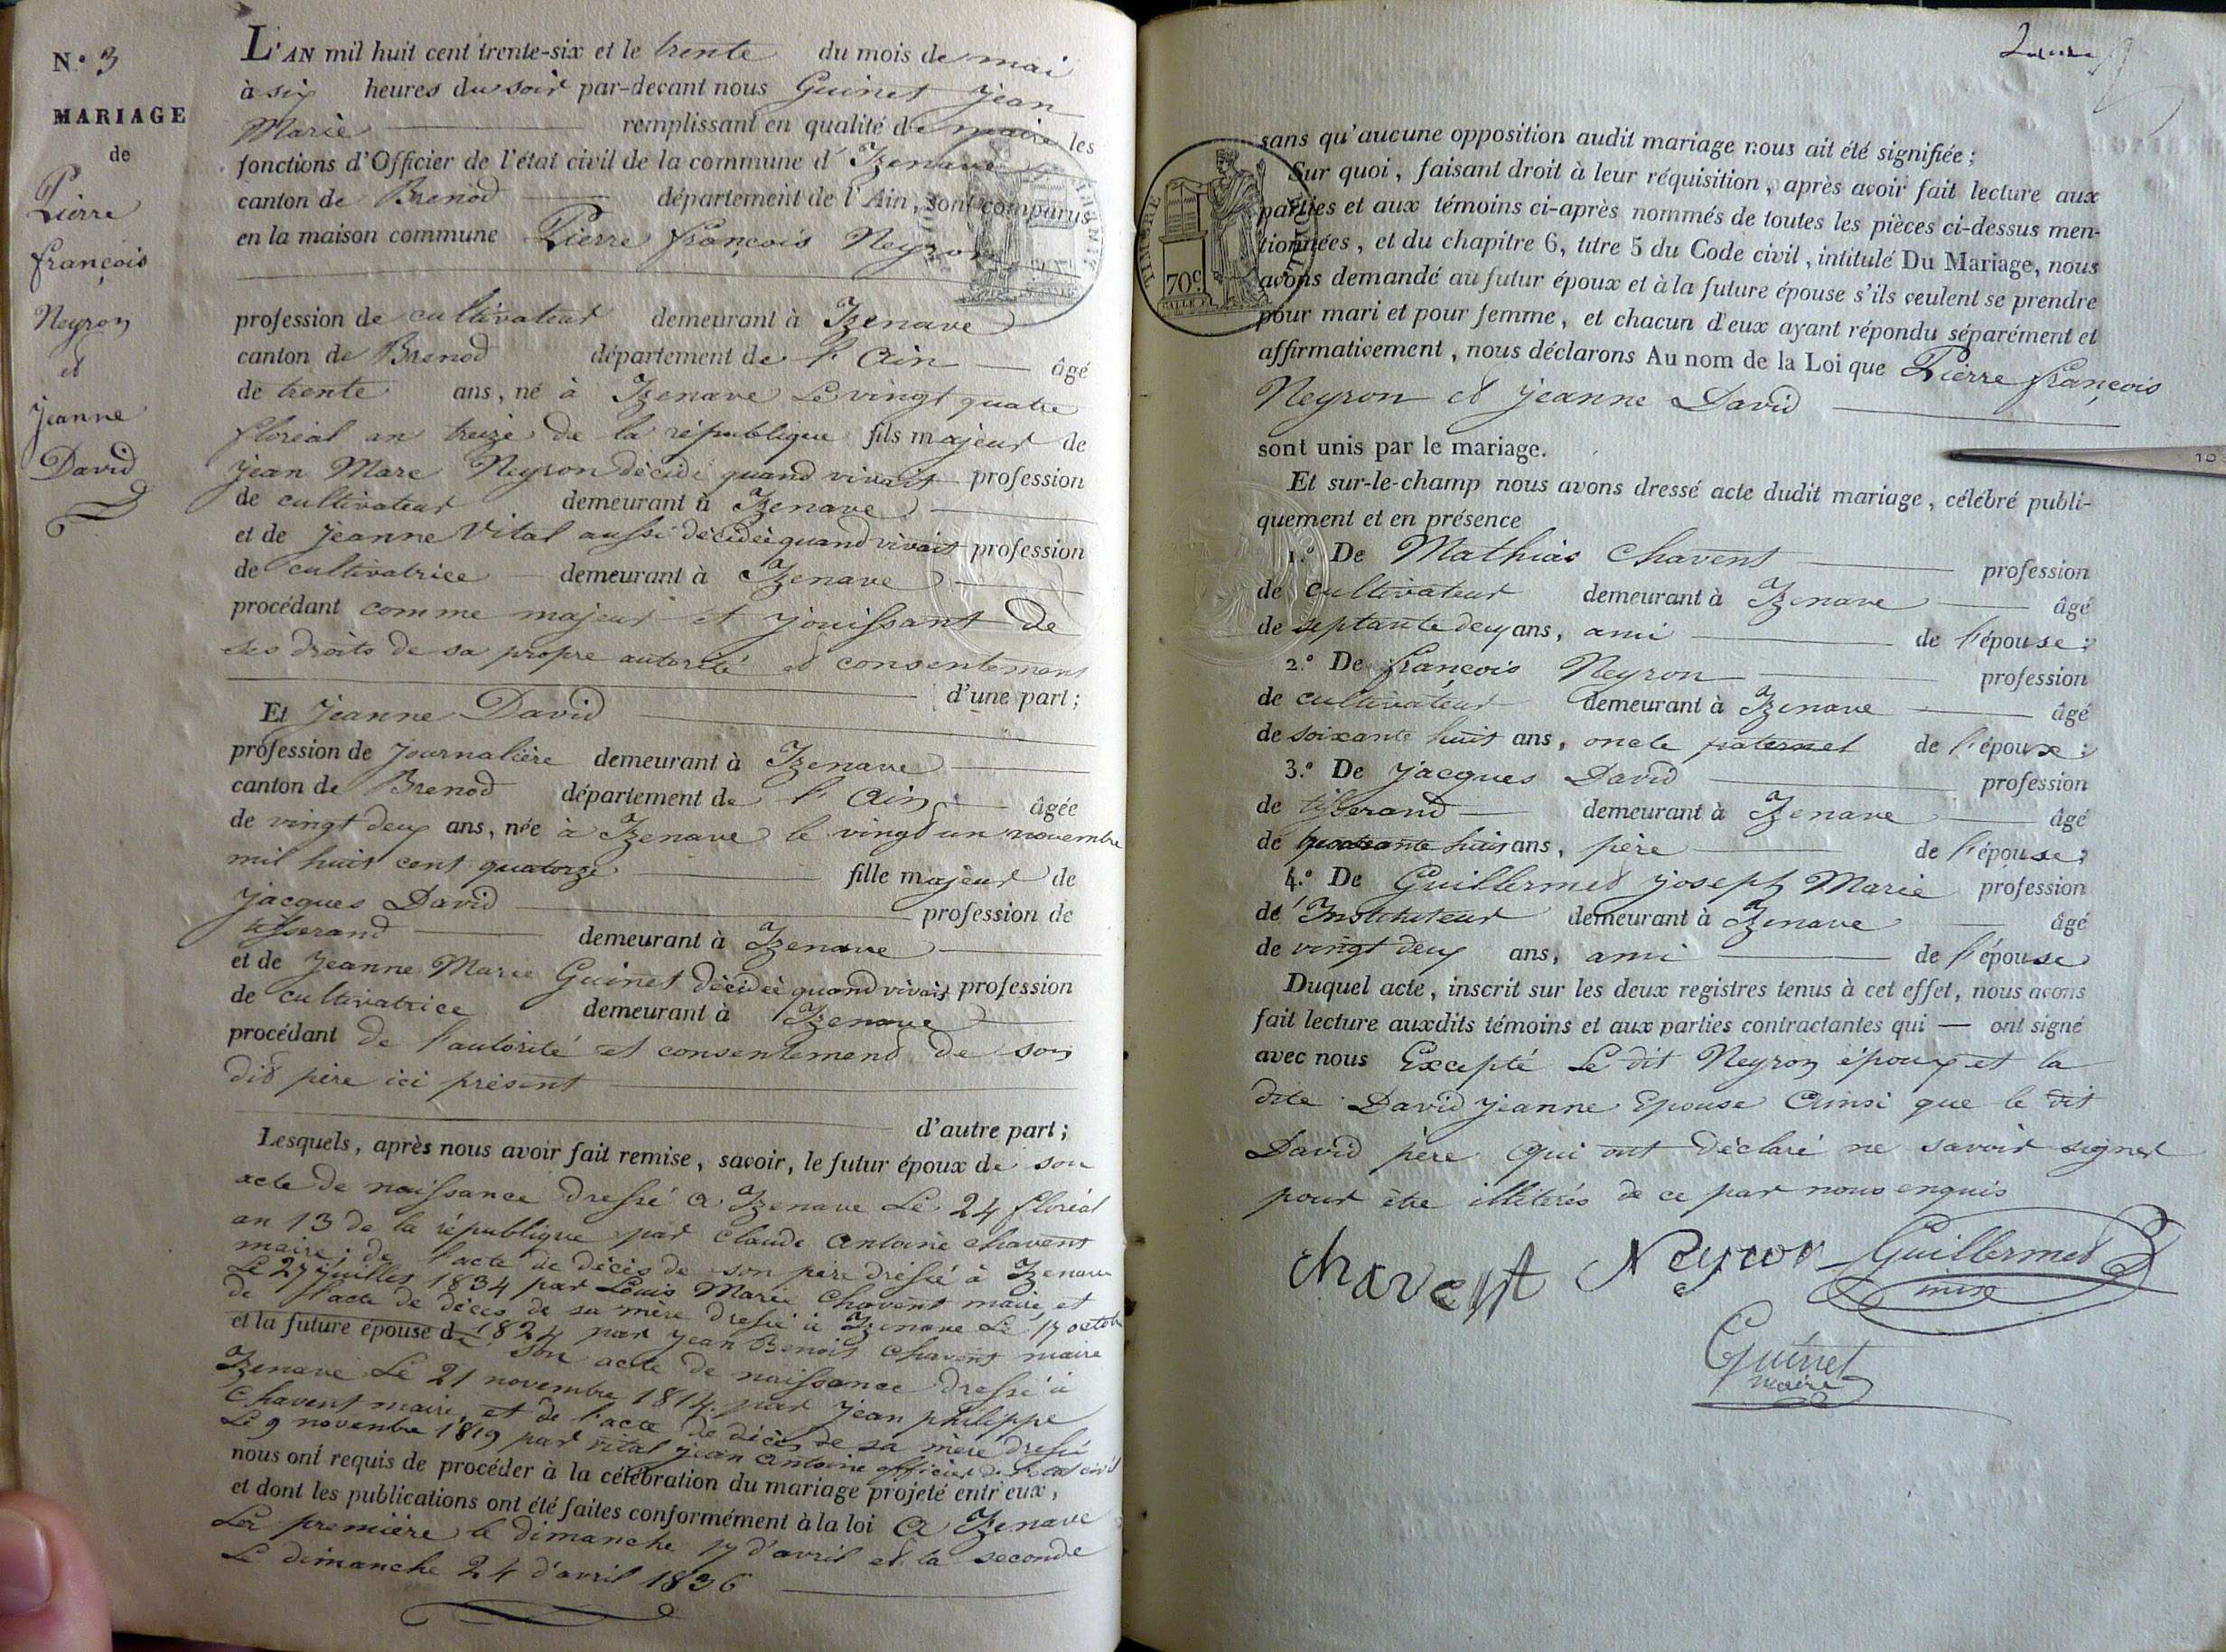 N.° 3
MARIAGE
de
Pierre
françois
Neyron
et
jeanne
David
L'AN mil huit cent trente-six et le trente du mois de mai
à six heures du soir par-devant nous Guinet jean
Marie remplissant en qualité de maire les
fonctions d'Officier de l'état civil de la commune d'Izenave
canton de Brenod département de l'Ain, sont comparus
en la maison commune Pierre françois Neyron
profession de cultivateur demeurant à Izenave
canton de Brenod département de l'Ain âgé
de trente ans, né à Izenave Le vingt quatre
floréal an treize de la république fils majeur de
jean Marc Neyron décidé quand vivait profession
de cultivateur demeurant à Izenave
et de jeanne Vital aussi décidée quand vivait profession
de cultivatrice demeurant à Izenave
procédant comme majeur et jouissant de
ses droits de sa propre autorité et consentement
d'une part;
Et jeanne David
profession de journalière demeurant à Izenave
canton de Brenod département de l'Ain âgée
de vingt deux ans, née à Izenave le vingt un novembre
mil huit cent quatorze fille majeur de
jacques David profession de
tisserand demeurant à Izenave
et de jeanne Marie Guinet décidée quand vivait profession
de cultivatrice demeurant à Izenave
procédant de l'autorité et consentement de son
dit père ici présent
d'autre part;
Lesquels, après nous avoir fait remise, savoir, le futur époux de son
acte de naissance dressé a Izenave Le 24 floréal
an 13 de la république par Claude Antoine chavent
maire; de l'acte de décès de son père dressé à Izenave
Le 27 juillet 1834 par Louis Marie Chavent maire, et
de l'acte de décès de sa mère dressé à Izenave Le 17 octobre
et la future épouse de 1824 par jean Benoit Chavent maire
son acte de naissance dressé à
Izenave Le 21 novembre 1814 par jean philippe
Chavent maire, et de l'acte de décès de sa mère dressé
Le 9 novembre 1819 par vital jean antoine officier de l'état civil
nous ont requis de procéder à la célébration du mariage projeté entr'eux,
et dont les publications ont été faites conformément à la loi a Izenave
La première le dimanche 17 d'avril et la seconde
Le dimanche 24 d'avril 1836
sans qu'aucune opposition audit mariage nous ait été signifiée;
Sur quoi, faisant droit à leur réquisition, après avoir fait lecture aux
parties et aux témoins ci-après nommés de toutes les pièces ci-dessus men-
tionnées, et du chapitre 6, titre 5 du Code civil, intitulé Du Mariage, nous
avons demandé au futur époux et à la future épouse s'ils veulent se prendre
pour mari et pour femme, et chacun d'eux ayant répondu séparément et
affirmativement, nous déclarons Au nom de la Loi que Pierre françois
Neyron et jeanne David
sont unis par le mariage.
Et sur-le-champ nous avons dressé acte dudit mariage, célébré publi-
quement et en présence
1.° De Mathias Chavent profession
de cultivateur demeurant à Izenave âgé
de septante deux ans, ami de l'épouse;
2.° De françois Neyron profession
de cultivateur demeurant à Izenave âgé
de soixante huit ans, oncle paternel de l'époux;
3.° De jacques David profession
de tisserand demeurant à Izenave âgé
de quarante huit ans, père de l'épouse;
4.° De Guillermet joseph Marie profession
de Instituteur demeurant à Izenave âgé
de vingt deux ans, ami de l'épouse
Duquel acte, inscrit sur les deux registres tenus à cet effet, nous avons
fait lecture auxdits témoins et aux parties contractantes qui — ont signé
avec nous Excepté Le dit Neyron époux et la
dite David jeanne Epouse Ainsi que le dit
David père qui ont déclaré ne savoir signer
pour être illitérés de ce par nous enquis
chavent Neyron Guillermet
Guinet
maire
TIMBRE
ROYAL
70c
10